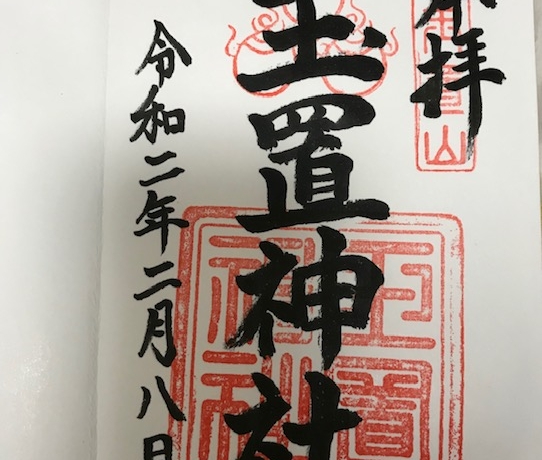 奉拝
玉置神社
令和二年二月八日
玉置山
玉置
神社